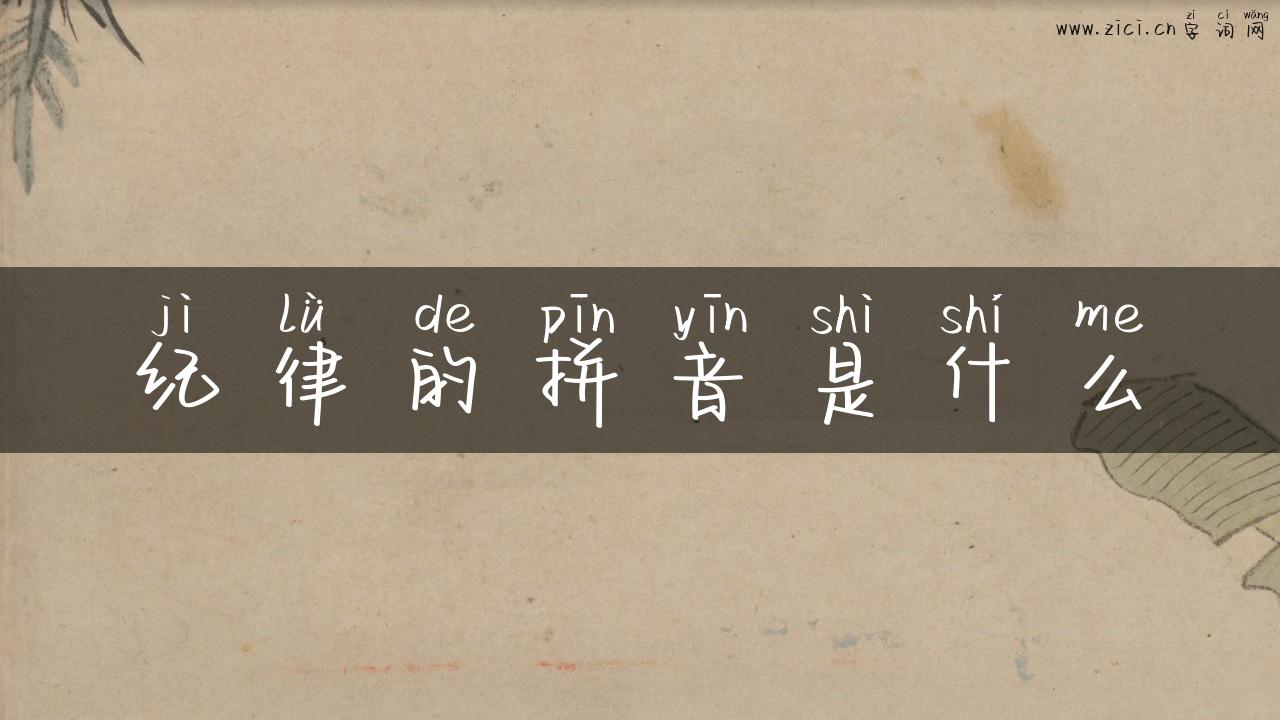 zì cí wǎng
www.zici.cn 字 词 网
jì lǜ de pīn yīn shì shí me
纪 律 的 拼 音 是 什 么